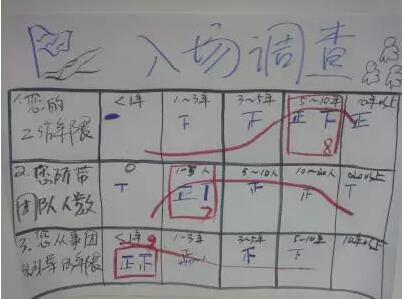 入场调查
1.您的 <1年 1~3年 3~5年 5~10年 10年以上
工作年限 下 正 正下 正
8
2.您所带 0 1~5人 5~10人 10~20人 20以上
团队人数 T 正 正 下 T
7
3.您从事团 <1年 9 1~3年 3~5年 5~10年 10年以上
队引导的年限 正正 下 下